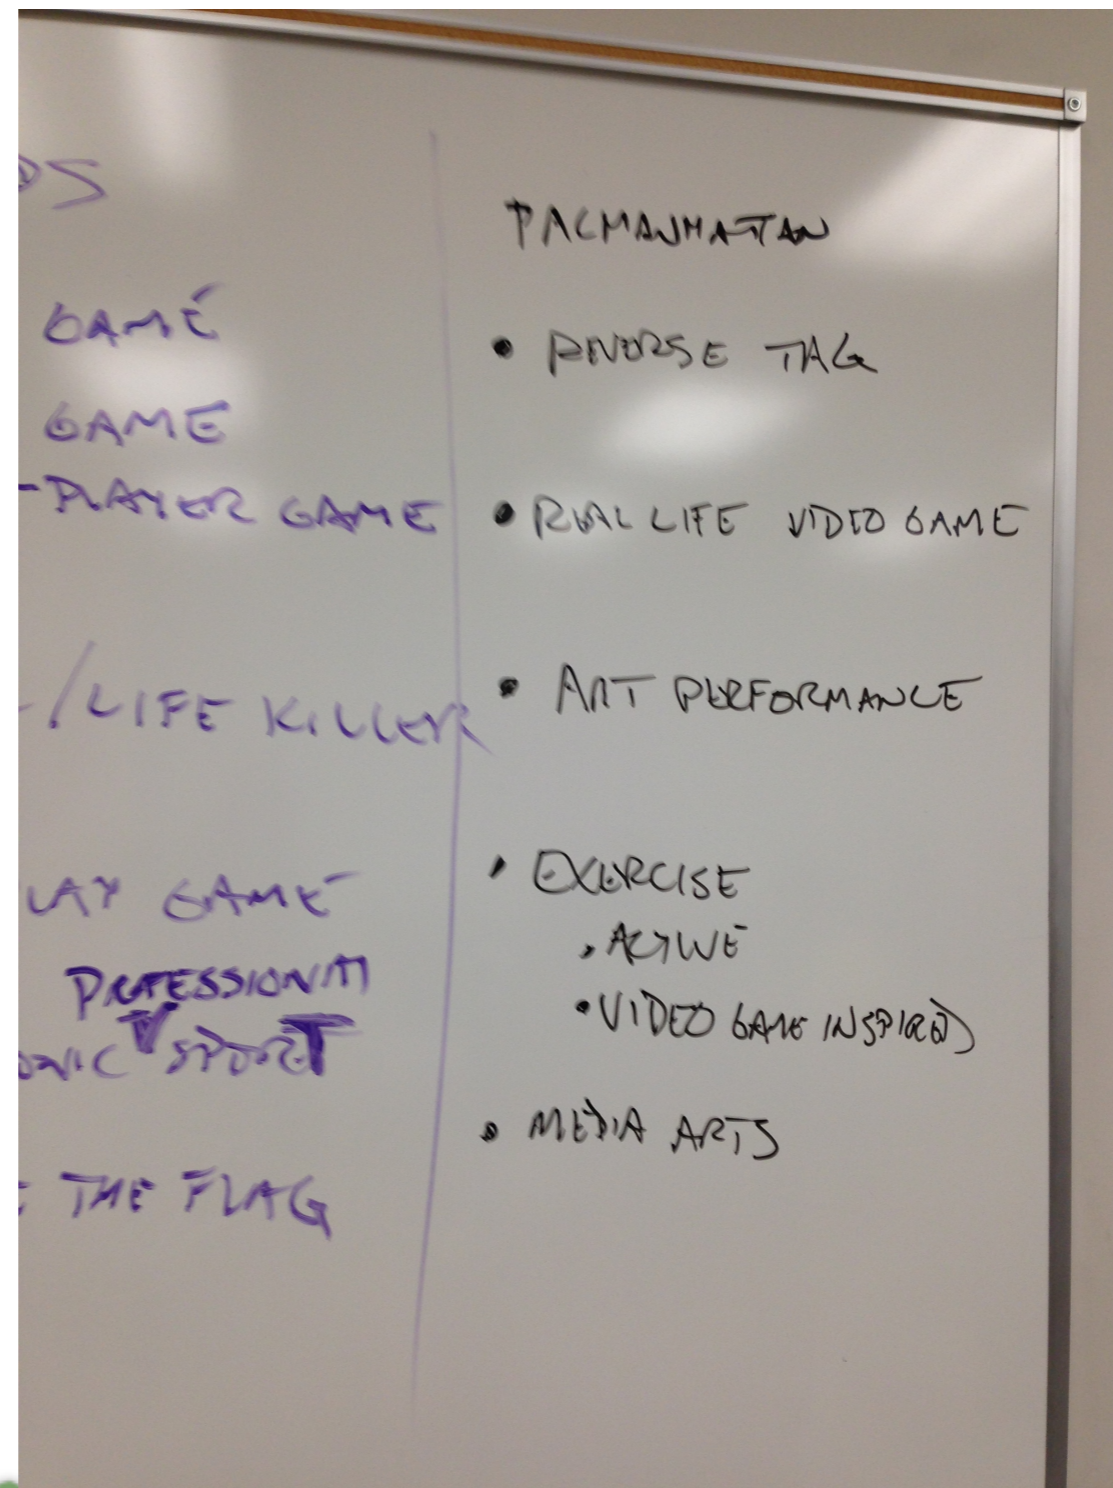 DS
GAME
GAME
-PLAYER GAME
/LIFE KILLER
LAY GAME
PROFESSIONAL
ONIC SPORT
THE FLAG
PACMANHATTAN
• REVERSE TAG
• REAL LIFE VIDEO GAME
• ART PERFORMANCE
• EXERCISE
• ACTIVE
• VIDEO GAME INSPIRED
• MEDIA ARTS